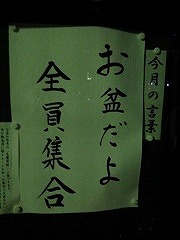 今月の言葉
お盆だよ
全員集合